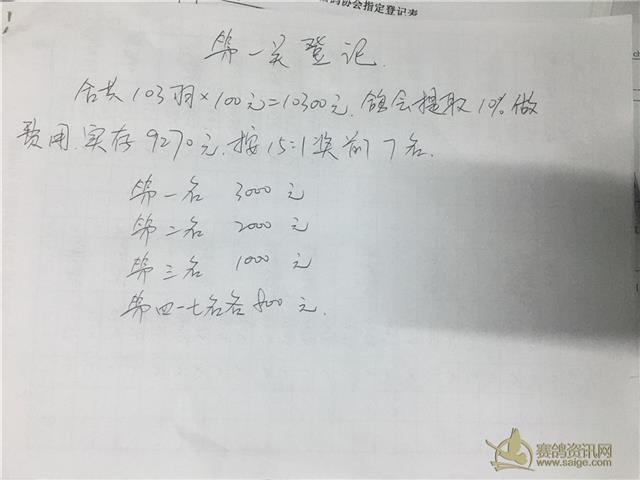 鸽协会指定登记表
第一关登记.
合共103羽×100元=10300元.鸽会提取10%做
费用.实存9270元.按15:1奖前7名.
第一名 3000元
第二名 2000元
第三名 1000元
第四一七名各800元.
赛鸽资讯网
www.saige.com